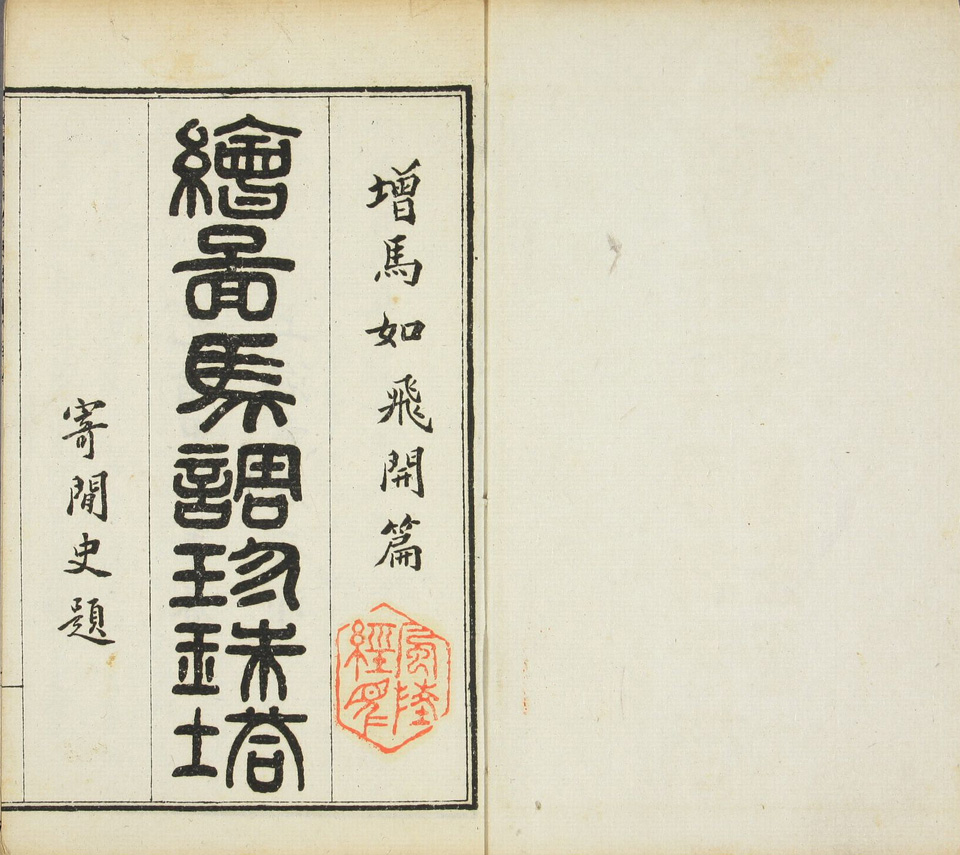 增馬如飛開篇
繪啚馬調珍珠塔
寄閒史題
經眼